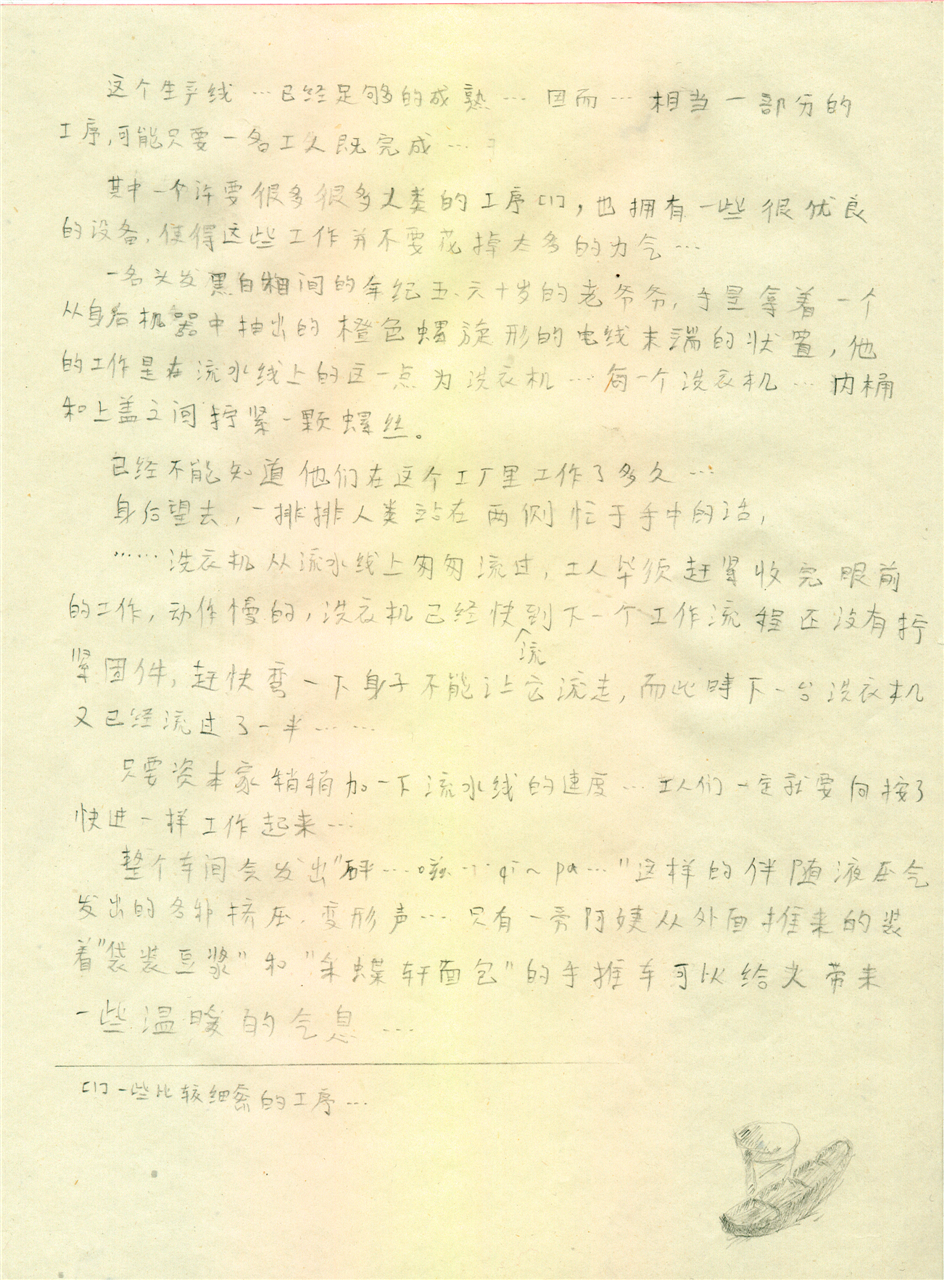 这个生产线…已经足够的成熟…因而…相当一部分的
工序,可能只要一名工人既完成…
其中一个许要很多很多人类的工序[1],也拥有一些很优良
的设备,使得这些工作并不要花掉太多的力气…
一名头发黑白相间的年纪五、六十岁的老爷爷,手里拿着一个
从身后机器中抽出的橙色螺旋形的电线末端的状置,他
的工作是在流水线上的这一点为洗衣机…每一个洗衣机…内桶
和上盖之间拧紧一颗螺丝。
已经不能知道他们在这个工厂里工作了多久…
身后望去,一排排人类站在两侧忙于手中的活,
……洗衣机从流水线上匆匆流过,工人毕须赶紧收完眼前
的工作,动作慢的,洗衣机已经快流到下一个工作流程还没有拧
紧固件,赶快弯一下身子不能让它流走,而此時下一台洗衣机
又已经流过了一半……
只要资本家稍稍加一下流水线的速度…工人们一定就要向按了
快进一样工作起来…
整个车间会发出"砰…嗞…qi~pa…"这样的伴随液压气
发出的各种挤压、变形声…只有一旁阿姨从外面推来的装
着"袋装豆浆"和"蝶轩面包"的手推车可以给人带来
一些温暖的气息…
[1]一些比较细密的工序…